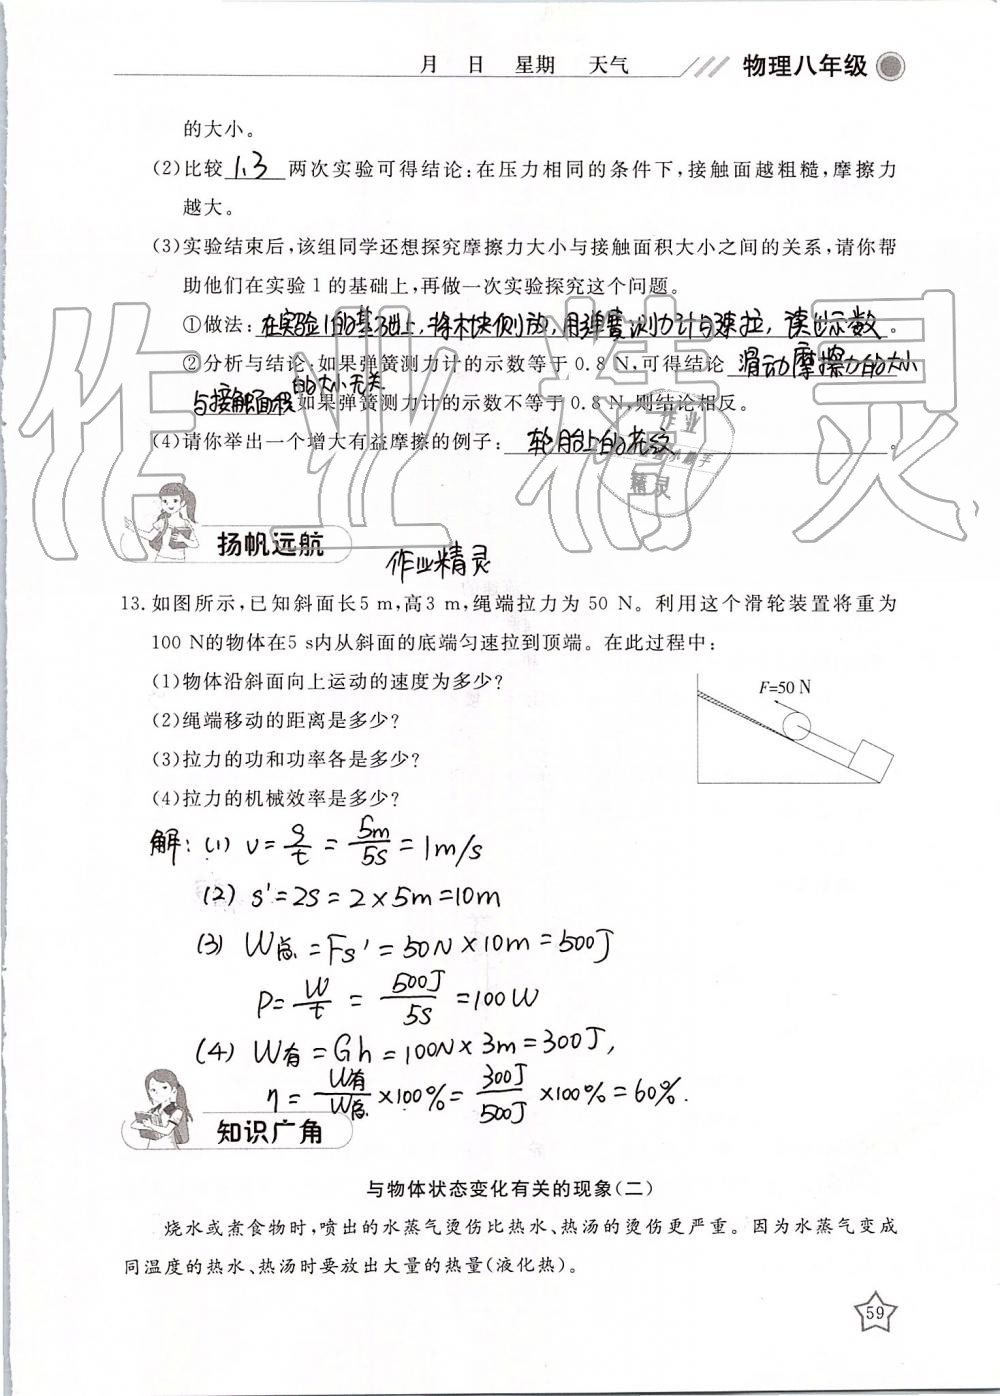 月 日 星期 天气 物理八年级
的大小。
(2)比较 1、3 两次实验可得结论:在压力相同的条件下,接触面越粗糙,摩擦力
越大。
(3)实验结束后,该组同学还想探究摩擦力大小与接触面积大小之间的关系,请你帮
助他们在实验 1 的基础上,再做一次实验探究这个问题。
①做法: 在实验1的基础上,将木块侧放,用弹簧测力计匀速拉,读出示数 。
②分析与结论:如果弹簧测力计的示数等于 0.8 N,可得结论 滑动摩擦力的大小
与接触面积的大小无关 如果弹簧测力计的示数不等于 0.8 N,则结论相反。
(4)请你举出一个增大有益摩擦的例子: 轮胎上的花纹 。
扬帆远航
作业精灵
13. 如图所示,已知斜面长5 m,高3 m,绳端拉力为 50 N。利用这个滑轮装置将重为
100 N的物体在5 s内从斜面的底端匀速拉到顶端。在此过程中:
(1)物体沿斜面向上运动的速度为多少?
(2)绳端移动的距离是多少?
(3)拉力的功和功率各是多少?
(4)拉力的机械效率是多少?
F=50 N
解: (1) v=s/t=5m/5s=1m/s
(2) s'=2s=2×5m=10m
(3) W总=Fs'=50N×10m=500J
P=W/t=500J/5s=100W
(4) W有=Gh=100N×3m=300J,
η=W有/W总×100%=300J/500J×100%=60%.
知识广角
与物体状态变化有关的现象(二)
烧水或煮食物时,喷出的水蒸气烫伤比热水、热汤的烫伤更严重。因为水蒸气变成
同温度的热水、热汤时要放出大量的热量(液化热)。
59
作业精灵